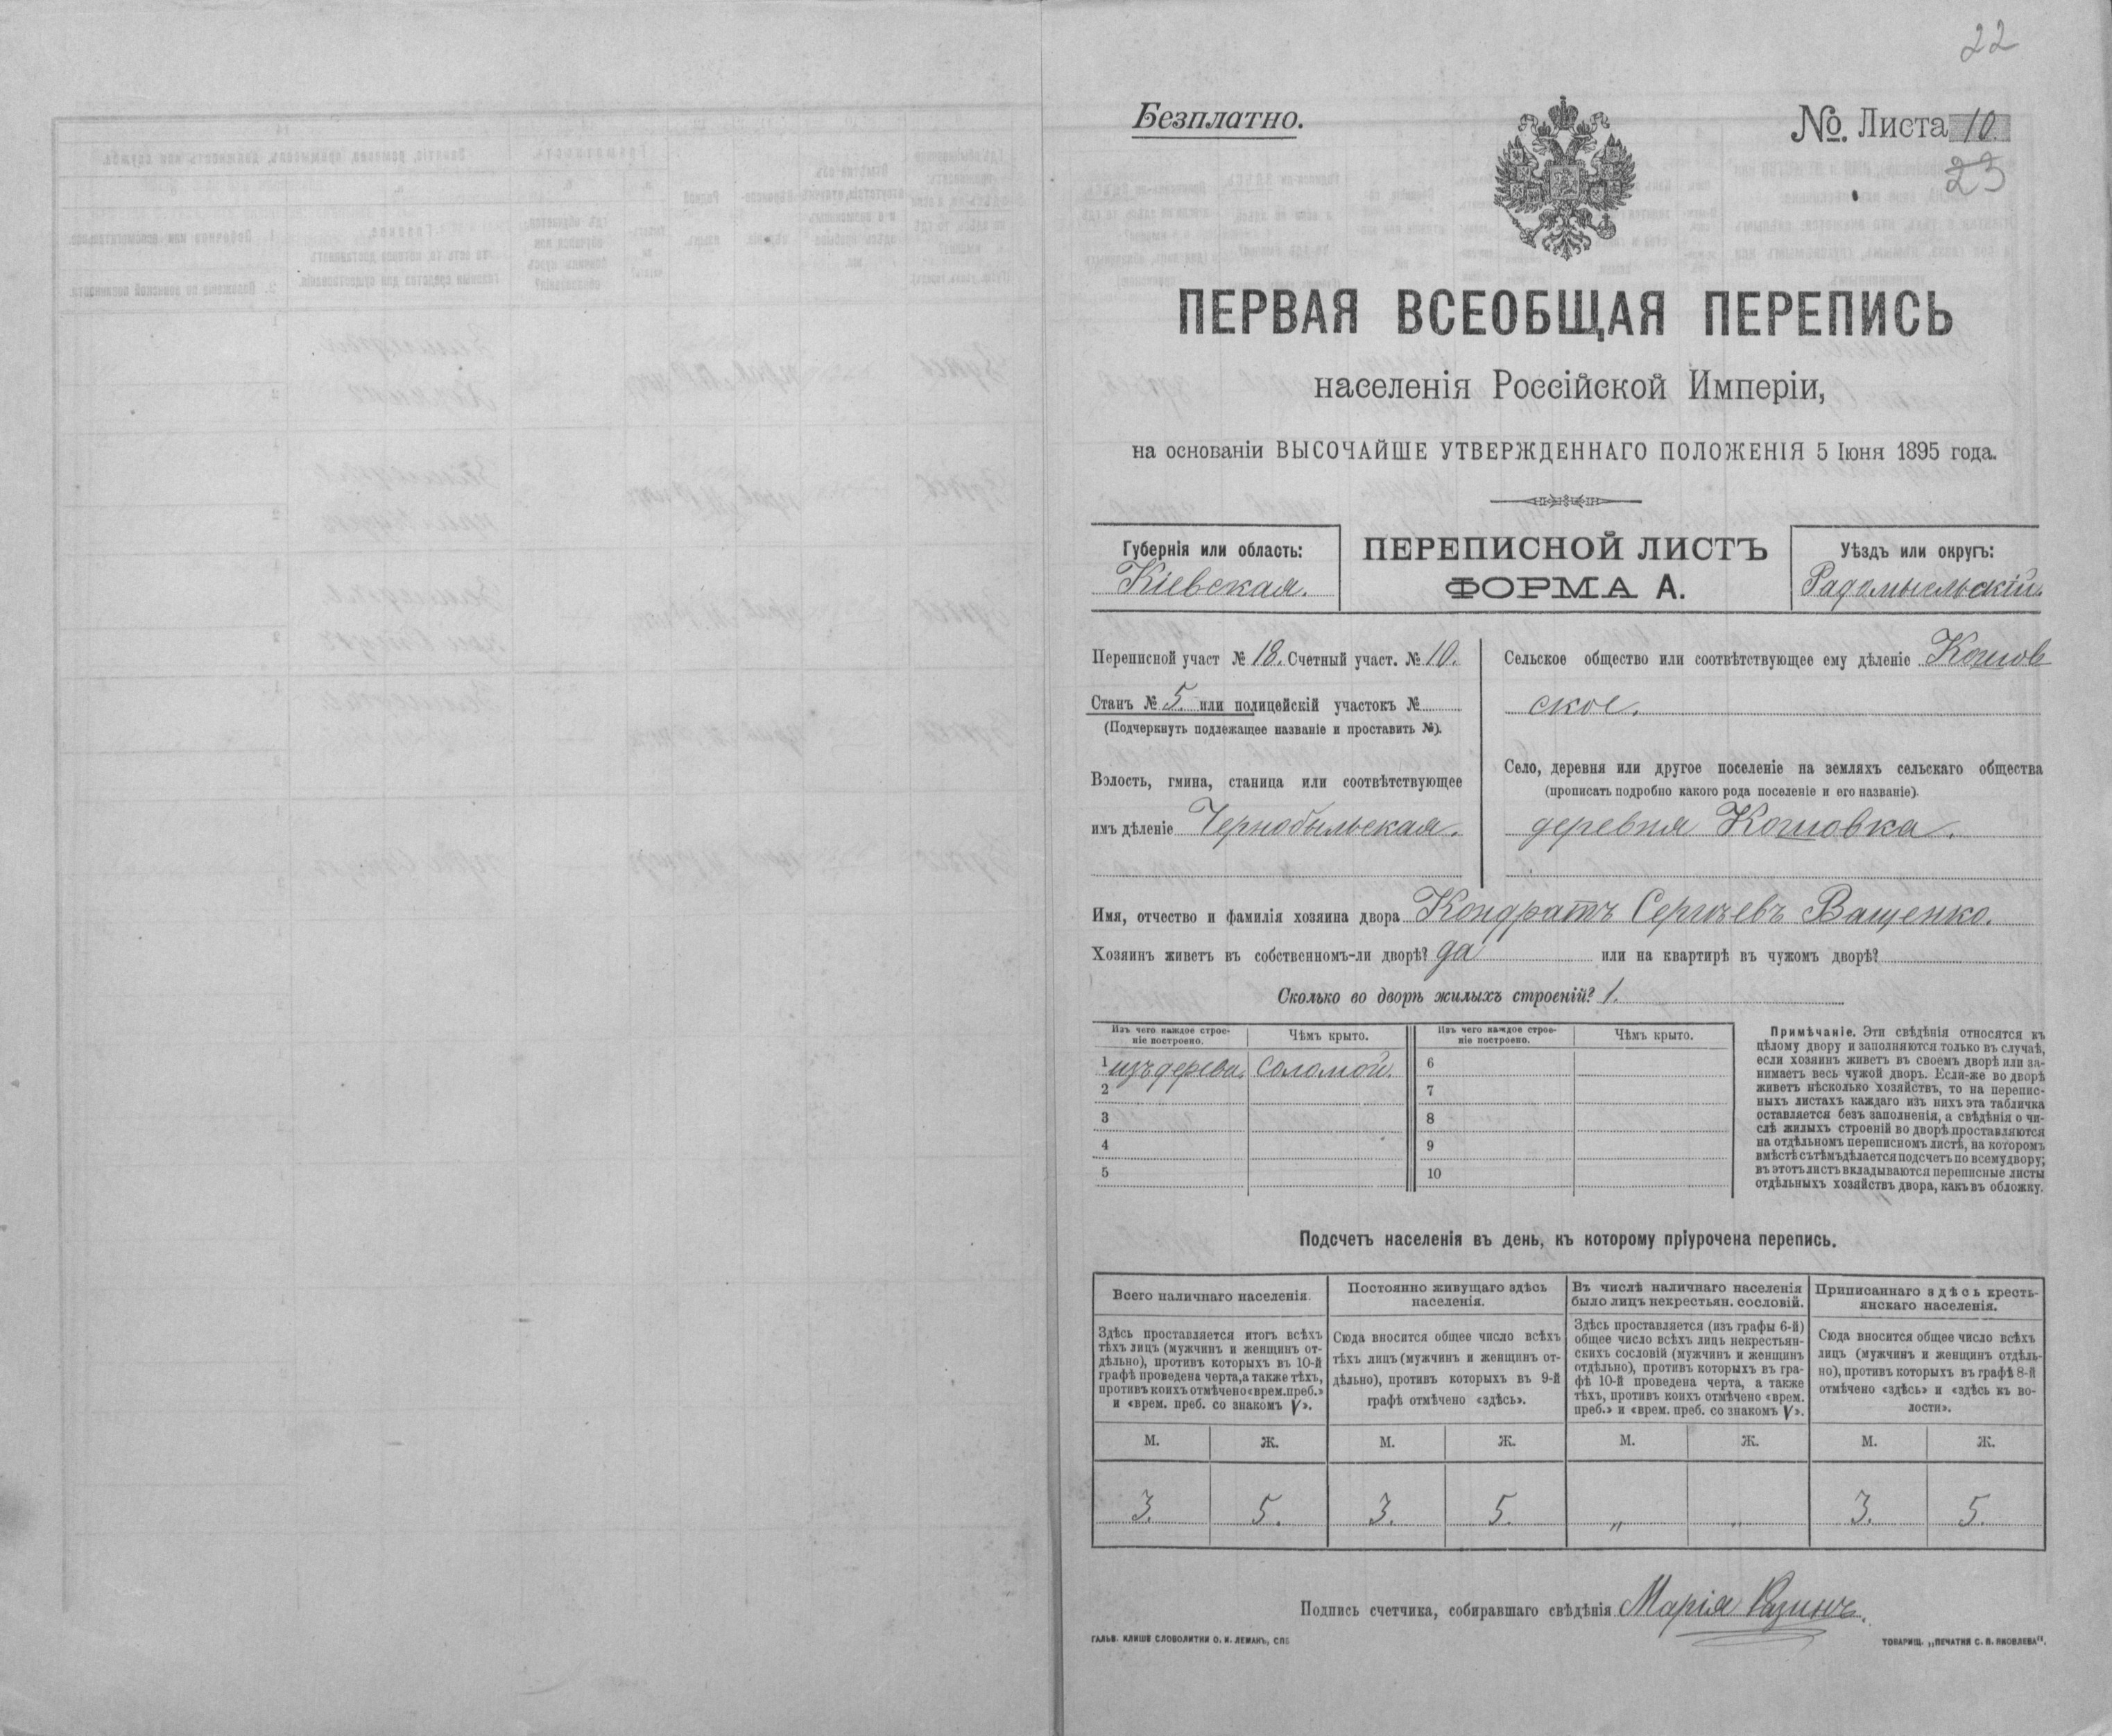 22
Безплатно.
№. Листа 10.
23
ПЕРВАЯ ВСЕОБЩАЯ ПЕРЕПИСЬ
населенія Россійской Имперіи,
на основаніи ВЫСОЧАЙШЕ УТВЕРЖДЕННАГО ПОЛОЖЕНІЯ 5 Іюня 1895 года.
Губернія или область:
Кіевская.
ПЕРЕПИСНОЙ ЛИСТЪ
ФОРМА А.
Уѣздъ или округъ:
Радомысльскій.
Переписной участ № 18. Счетный участ. № 10.
Станъ № 5. или полицейскій участокъ №
(Подчеркнуть подлежащее названіе и проставить №).
Волость, гмина, станица или соотвѣтствующее
имъ дѣленіе Чернобыльская.
Сельское общество или соотвѣтствующее ему дѣленіе Кошов
ское.
Село, деревня или другое поселеніе на земляхъ сельскаго общества
(прописать подробно какого рода поселеніе и его названіе).
деревня Кошовка.
Имя, отчество и фамилія хозяина двора Кондратъ Сергѣевъ Ващенко.
Хозяинъ живетъ въ собственномъ-ли дворѣ? да или на квартирѣ въ чужомъ дворѣ?
Сколько во дворѣ жилыхъ строеній? 1.
Изъ чего каждое строе-
ніе построено.
Чѣмъ крыто.
Изъ чего каждое строе-
ніе построено.
Чѣмъ крыто.
1 изъ дерева. соломой. 6
2 7
3 8
4 9
5 10
Примѣчаніе. Эти свѣдѣнія относятся къ
цѣлому двору и заполняются только въ случаѣ,
если хозяинъ живетъ въ своемъ дворѣ или за-
нимаетъ весь чужой дворъ. Если-же во дворѣ
живетъ нѣсколько хозяйствъ, то на перепис-
ныхъ листахъ каждаго изъ нихъ эта табличка
оставляется безъ заполненія, а свѣдѣнія о чи-
слѣ жилыхъ строеній во дворѣ проставляются
на отдѣльномъ переписномъ листѣ, на которомъ
вмѣстѣ съ тѣмъ дѣлается подсчетъ по всему двору;
въ этотъ листъ вкладываются переписные листы
отдѣльныхъ хозяйствъ двора, какъ въ обложку.
Подсчетъ населенія въ день, къ которому пріурочена перепись.
Всего наличнаго населенія.
Здѣсь проставляется итогъ всѣхъ
тѣхъ лицъ (мужчинъ и женщинъ от-
дѣльно), противъ которыхъ въ 10-й
графѣ проведена черта, а также тѣхъ,
противъ коихъ отмѣчено «врем. преб.»
и «врем. преб. со знакомъ V».
Постоянно живущаго здѣсь
населенія.
Сюда вносится общее число всѣхъ
тѣхъ лицъ (мужчинъ и женщинъ от-
дѣльно), противъ которыхъ въ 9-й
графѣ отмѣчено «здѣсь».
Въ числѣ наличнаго населенія
было лицъ некрестьян. сословій.
Здѣсь проставляется (изъ графы 6-й)
общее число всѣхъ лицъ некрестьян-
скихъ сословій (мужчинъ и женщинъ
отдѣльно), противъ которыхъ въ гра-
фѣ 10-й проведена черта, а также
тѣхъ, противъ коихъ отмѣчено «врем.
преб.» и «врем. преб. со знакомъ V».
Приписаннаго здѣсь кресть-
янскаго населенія.
Сюда вносится общее число всѣхъ
лицъ (мужчинъ и женщинъ отдѣль-
но), противъ которыхъ въ графѣ 8-й
отмѣчено «здѣсь» и «здѣсь къ во-
лости».
М. Ж. М. Ж. М. Ж. М. Ж.
3. 5. 3. 5. „ „ 3. 5.
Подпись счетчика, собиравшаго свѣдѣнія Марія
ГАЛЬВ. КЛИШЕ СЛОВОЛИТНИ О. И. ЛЕМАНЪ, СПБ
ТОВАРИЩ. „ПЕЧАТНЯ С. П. ЯКОВЛЕВА“.